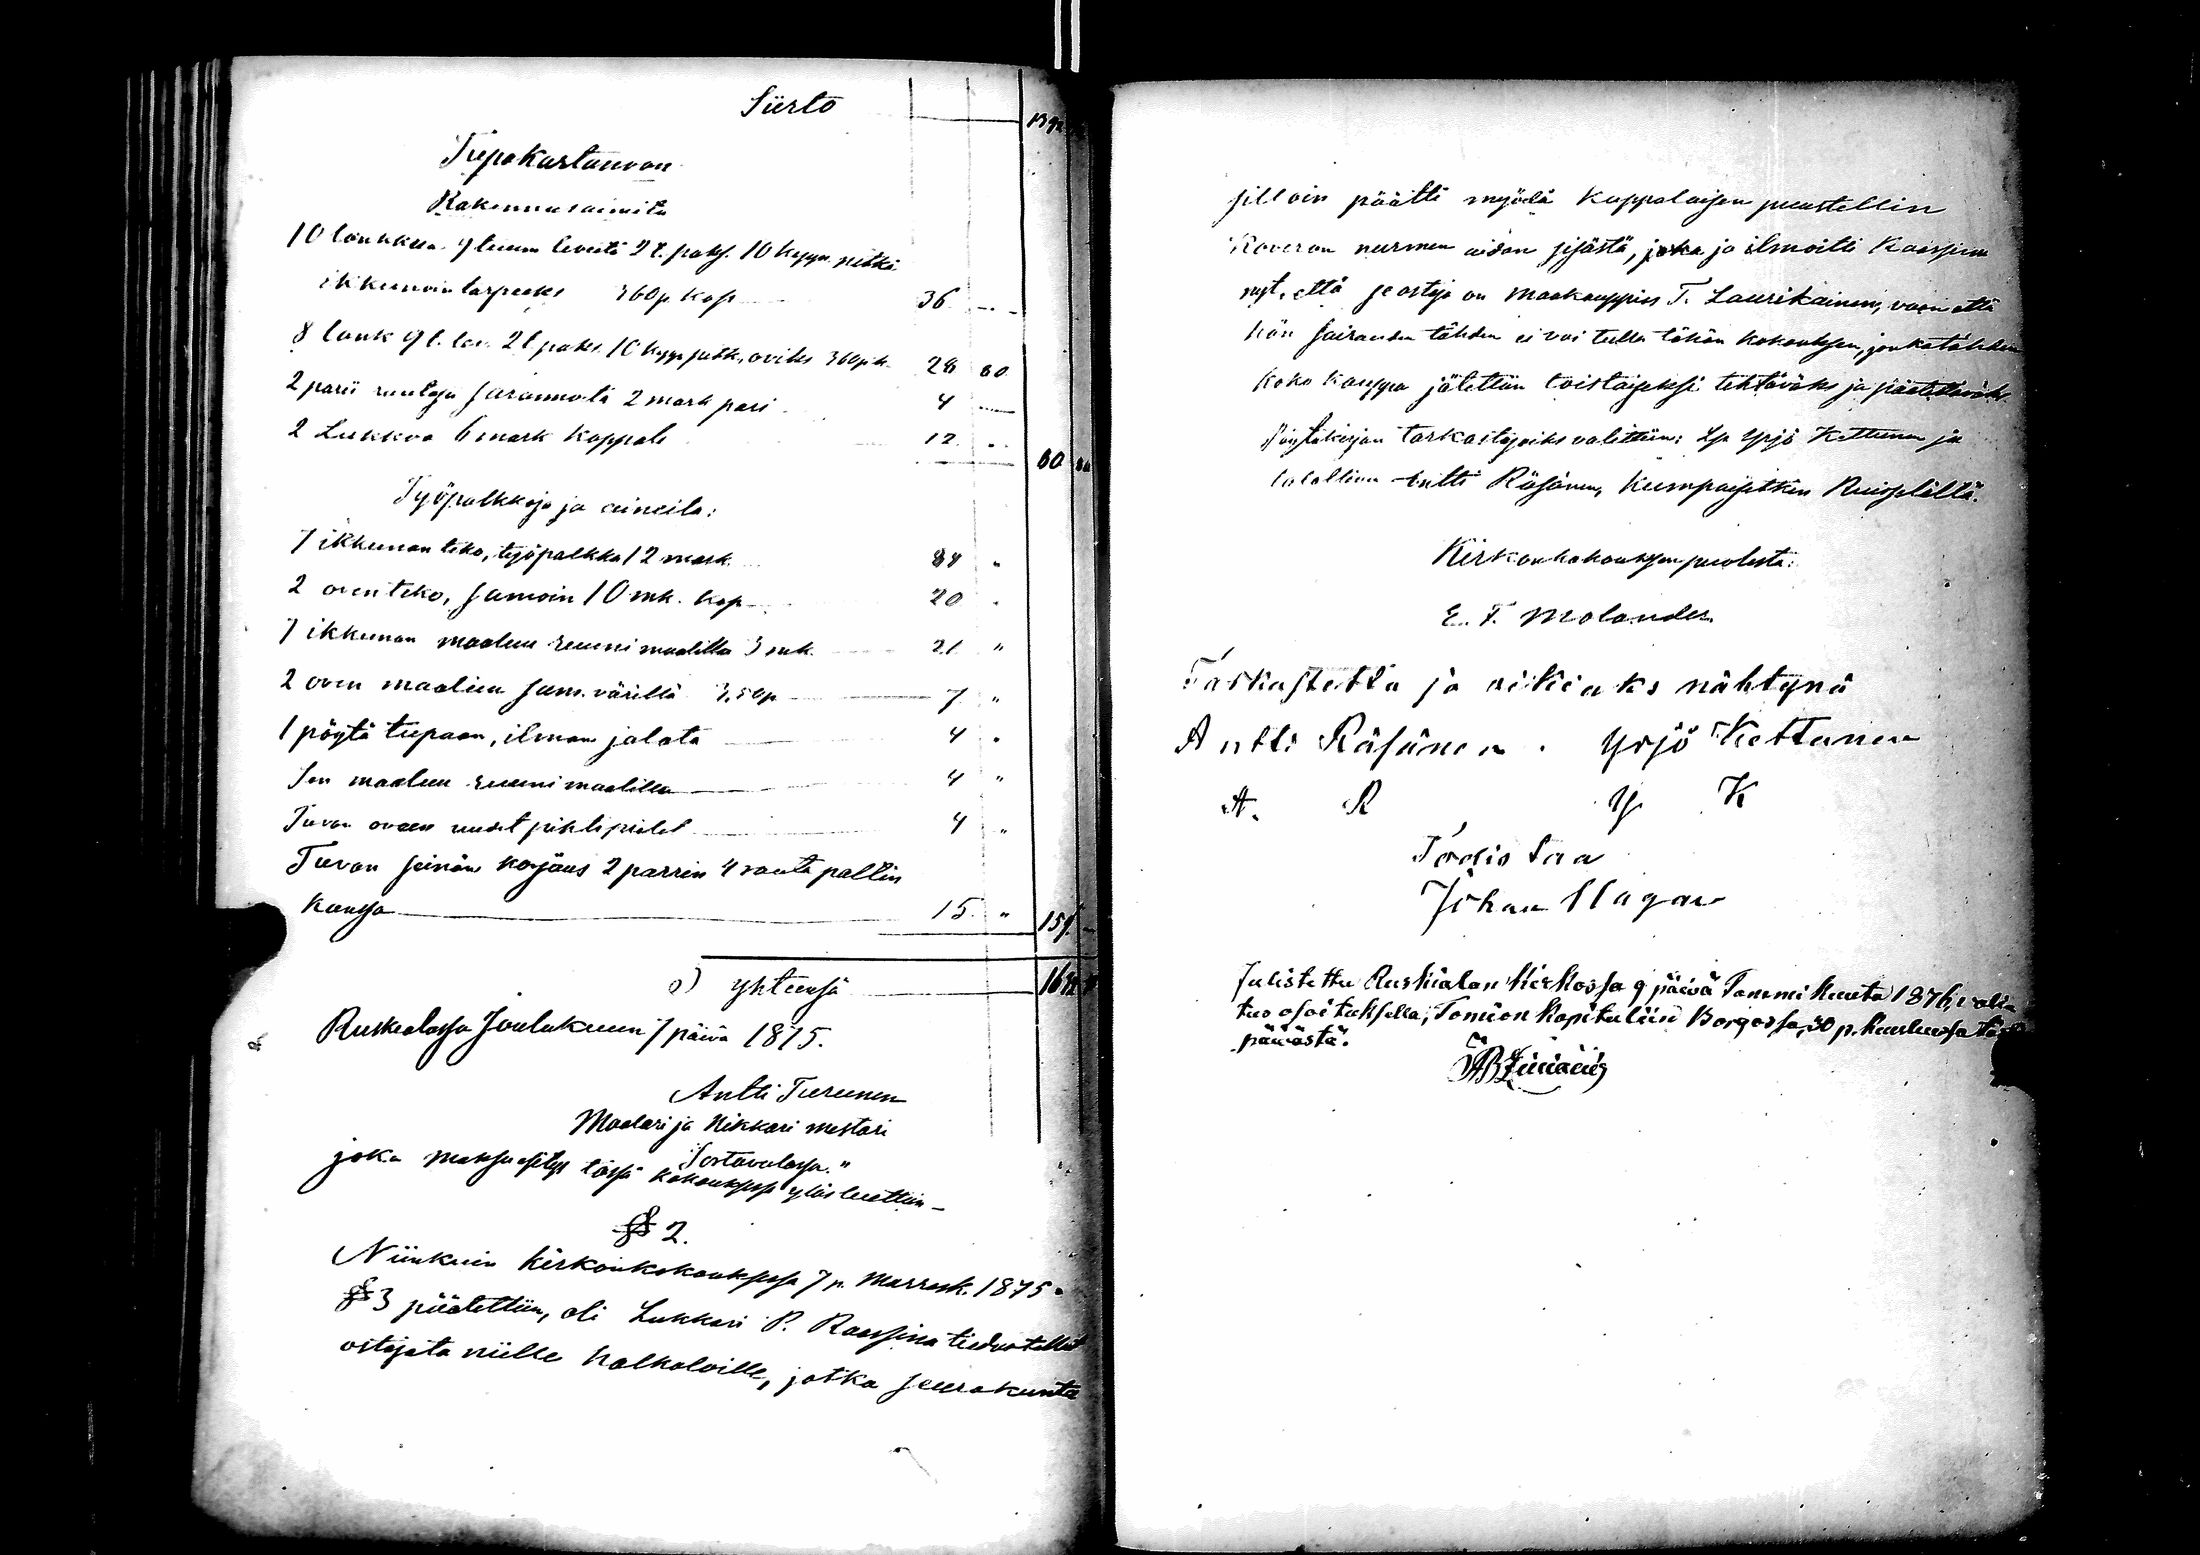 Siirto 1392
Tupakartanoon
Rakennusaineita
10 lankkua 9 tuum leveitä 2 t. paks. 10 kyyn. pitkä
ikkunoin tarpeeks 360 p kap 36 --
8 lank 9 t. lev. 2 t paks. 10 kyyn pitk, oviks 360 p k. 28 80
2 parii ruuteja saranoita 2 mark pari 4 --
2 Lukkoa 6 mark kappale 12 "
80 80
Työpalkkoja ja aineita:
7 ikkunan teko, työpalkka 12 mark. 84 "
2 oven teko, samoin 10 mk. kap 20 "
7 ikkunan maaluu ruuni maalilla 3 mk. 21 "
2 oven maaluu sam. värillä 3,50 p 7 "
1 pöytä tupaan, ilman jalata 4 "
Sen maaluu ruuni maalilla 4 "
Tuvan oveen uudet pihtipielet 4 "
Tuvan seinän korjaus 2 parrin 4 rauta pultin
kanssa 15 " 159
yhteensä
Ruskealassa Joulukuun 7 päivä 1875.
Antti Turunen
Maalari ja Nikkari mestari
Sortavalassa."
joka maksuesitys tässä kokouksessa ylösluettiin —
§ 2.
Niinkuin kirkonkokouksessa 7 p. Marrask. 1875
§ 3 päätettiin, oli Lukkari P. Raassina tiedustellut
ostajata niille haloille, jotka seurakunta
silloin päätti myödä Kappalaisen puustellin
Roveron nurmen aidan sisästä, joka ja ilmoitti Raassina
nyt, että se ostaja on Maakauppias T. Laurikainen, vaan että
hän sairauden tähden ei voi tulla tähän kokouksen, jonkatähden
koko kauppa jätettiin toistaiseksi tehtäväks ja päätettäväks.
Pöytäkirjan tarkastajoiks valittiin: Yrjö Kettunen ja
talollinen Antti Räsänen, kumpaisetkin Ruisselältä.
Kirkonkokouksen puolesta:
E. F. Molander.
Tarkastettu ja oikiaks nähtynä
Antti Räsänen. Yrjö Kettunen
A. R Y K
Todistaa
Johan Hagan
Julistettu Ruskialan Kirkossa 9 päivä Tammi kuuta 1876, valitus
osoituksella, Tomion Kapituliin Borgossa, 30 p. kuluessa tästä
päivästä.